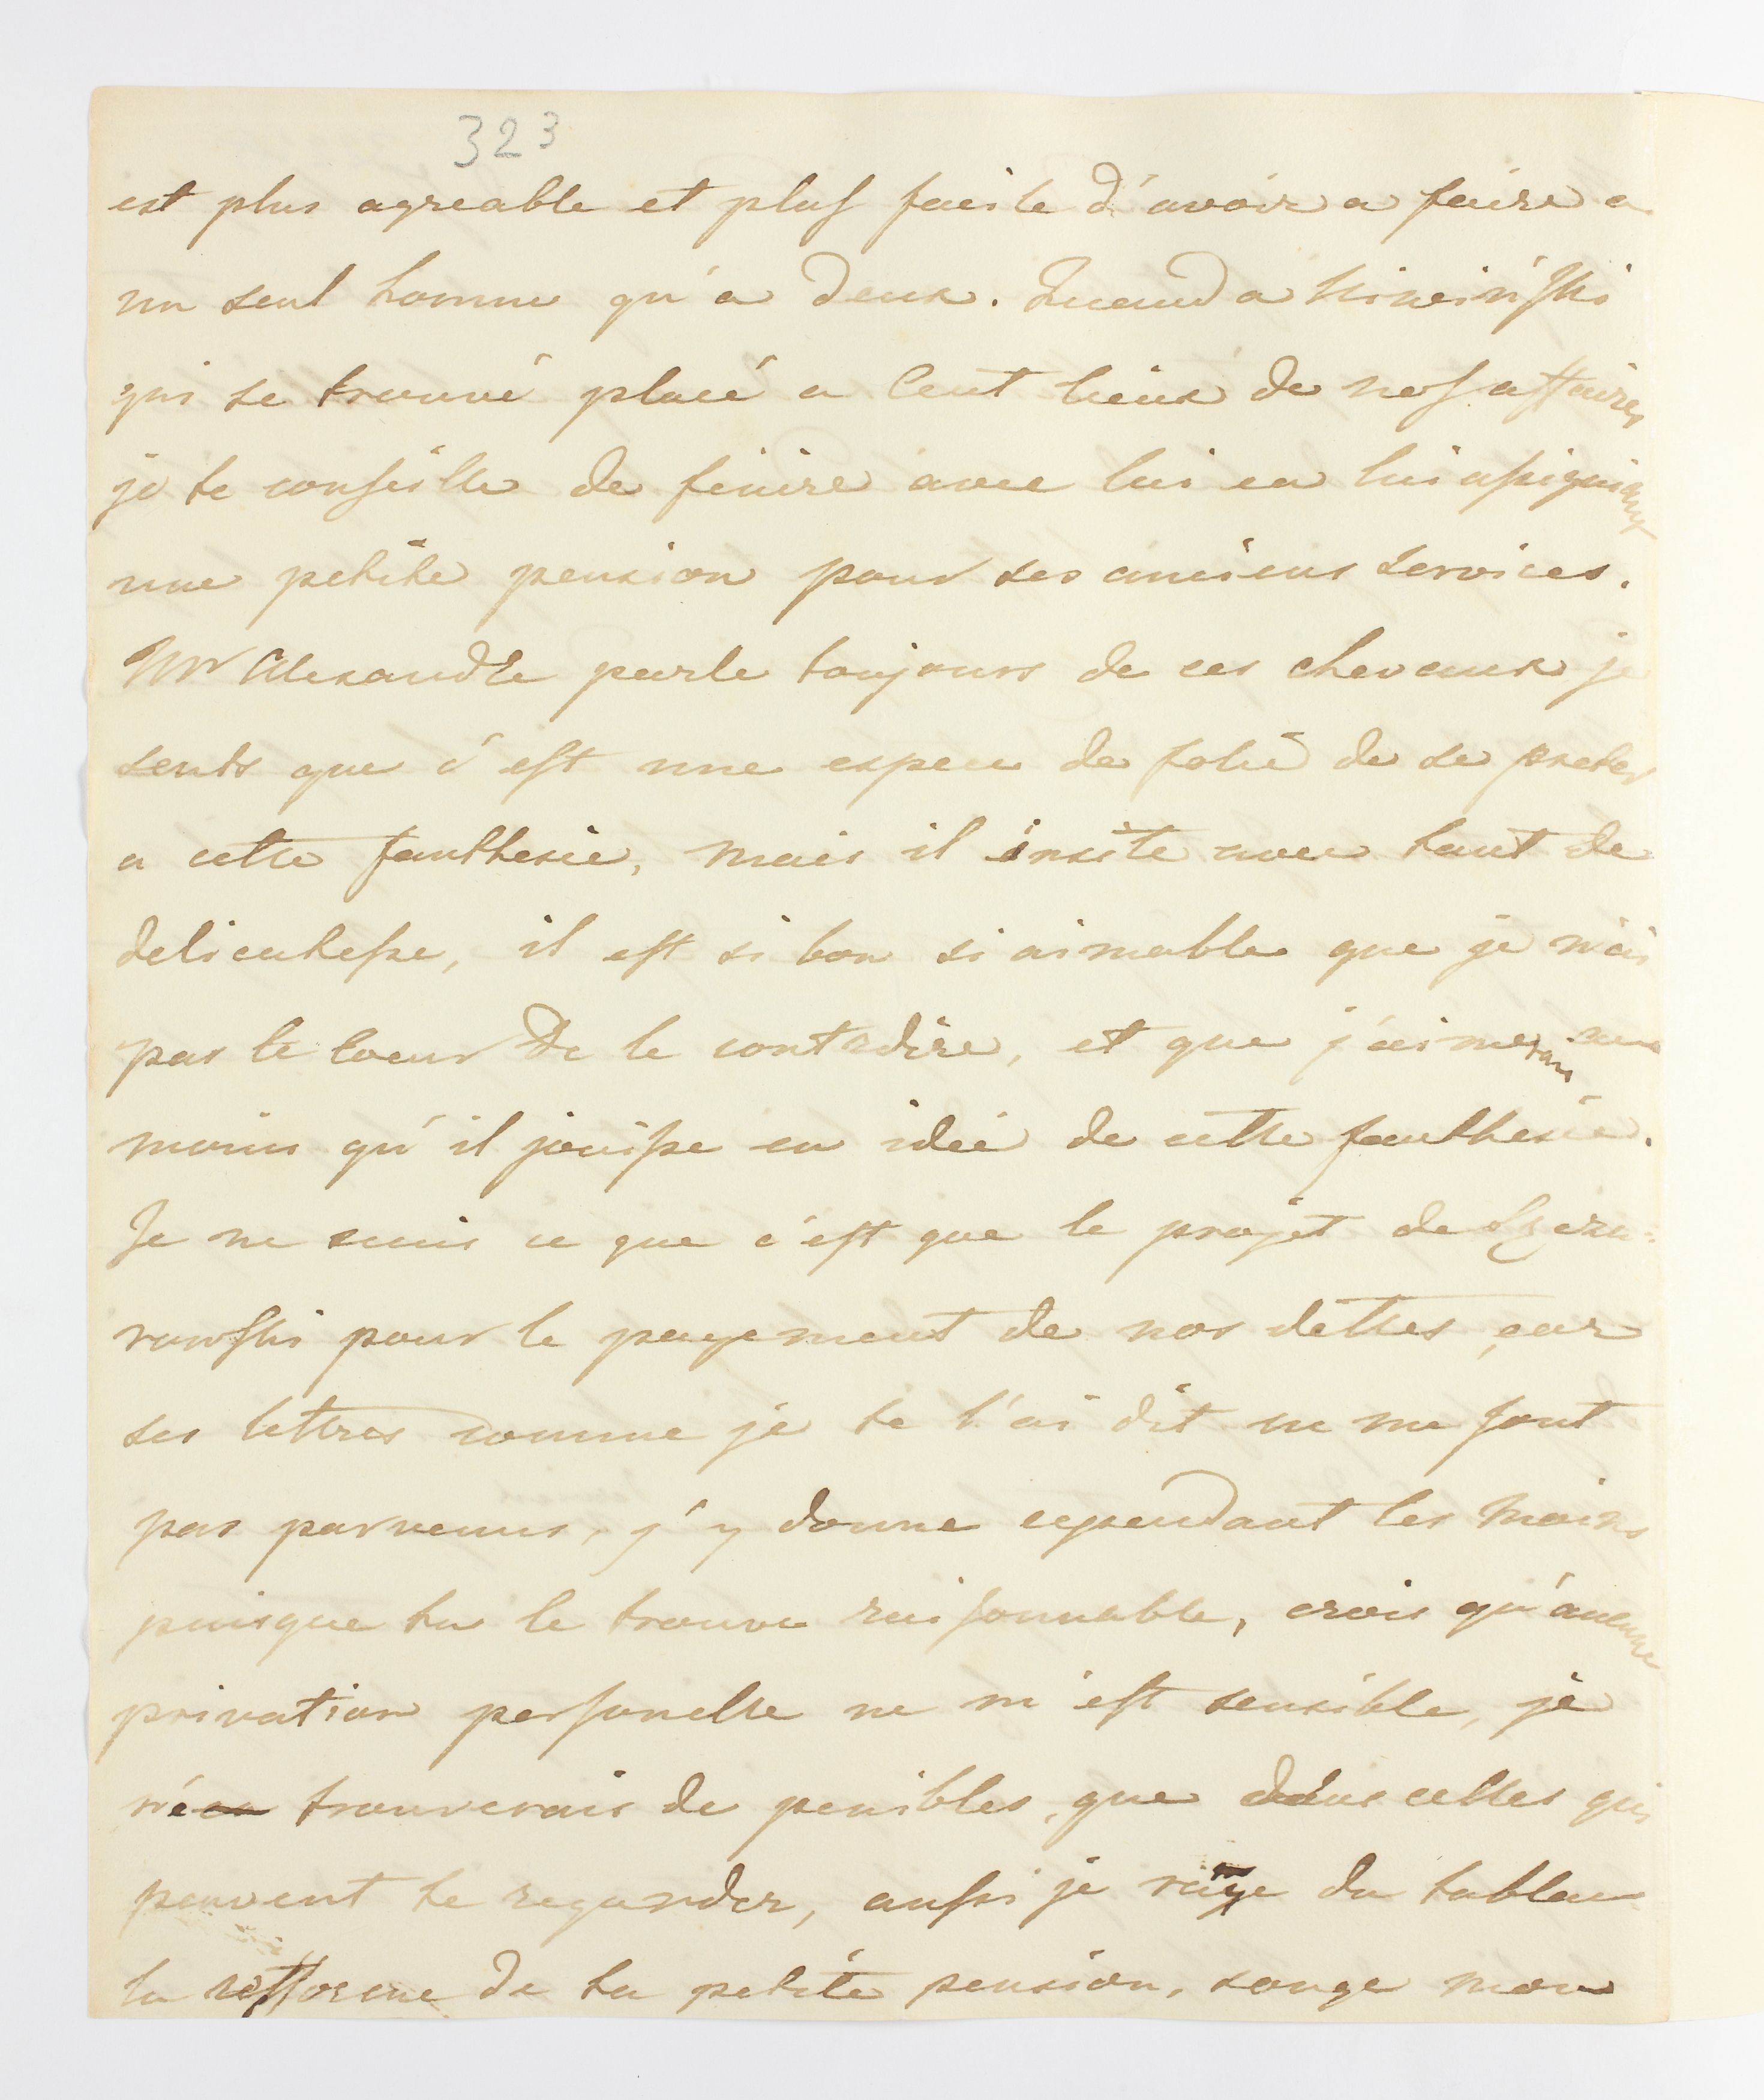 323
est plus agreable et plus facile d'avoir a faire a
un seul homme qu'a deux. Quand a
qui se trouvé placé a Cent lieux de nos affaires
je te conseille de finire avec lui en lui assignant
une petite pension pour ses anciens services.
Mr Alexandre parle toujours de ces chevaux je
sents que c'est une espece de folie de se preter
a cette fanthesie, mais il insite avec tant de
delicatesse, il est si bon si aimable que je n'ai
pas le coeur de le contrdire, et que j'aimerais au
moins qu'il jouisse en idée de cette fanthesie.
Je ne sais ce que c'est que le projet de
pour le payement de nos dettes, car
ses lettres comme je te l'ai dit ne me sont
pas parvenus, j'y donne cependant les mains
puisque tu le trouve raisonnable, crois qu'aucune
privation personelle ne m'est sensible, je
trouverais de penibles, que dans celles qui
peuvent te regarder, aussi je raye du tableau
la refforme de ta petite pension, songe mon